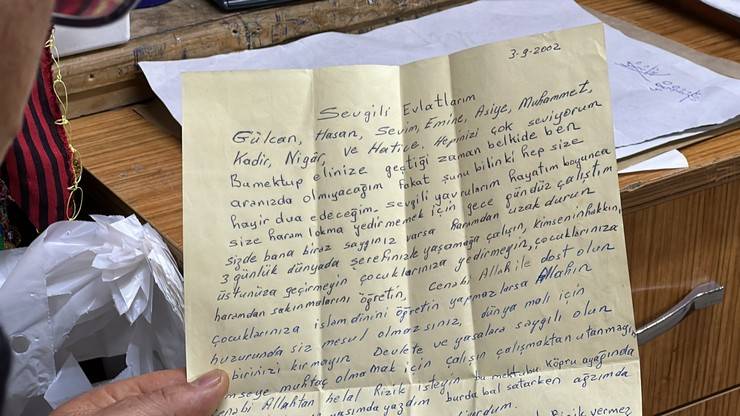 3-9-2002
Sevgili Evlatlarım
Gülcan, Hasan, Sevim, Emine, Asiye, Muhammet,
Kadir, Nigâr, ve Hatice. Hepinizi çok seviyorum
Bumektup elinize geçtiği zaman belkide ben
aranızda olmıyacağım fakat şunu bilinki hep size
hayir dua edeceğim. sevgili yavrularım hayatım boyunca
size haram lokma yedirmemek için gece gündüz çalıştım
sizde bana biraz saygınız varsa haramdan uzak durun
3 günlük dünyada şerefinizle yaşamağa çalışın, kimseninhakkın,
üstünüza geçirmeyin çocuklarınıza yedirmeyin, çocuklarınıza
haramdan sakınmalarını öğretin, cenabı Allah ile dost olun
çocuklarınıza islâmdinini öğretin yapmazlarsa Allahın
huzurunda siz mesul olmazsınız, dünya malı için
birinizi kırmayın Devlete ve yasalara saygılı olun
imseye muhtaç olmamak için çalışın çalışmaktan utanmayın,
cenâbı Allahtan helal Rızık isteyin bu mektubu Köprü ayağında
yaşında yazdım burda bal satarken ağzımda
Rızık vermez